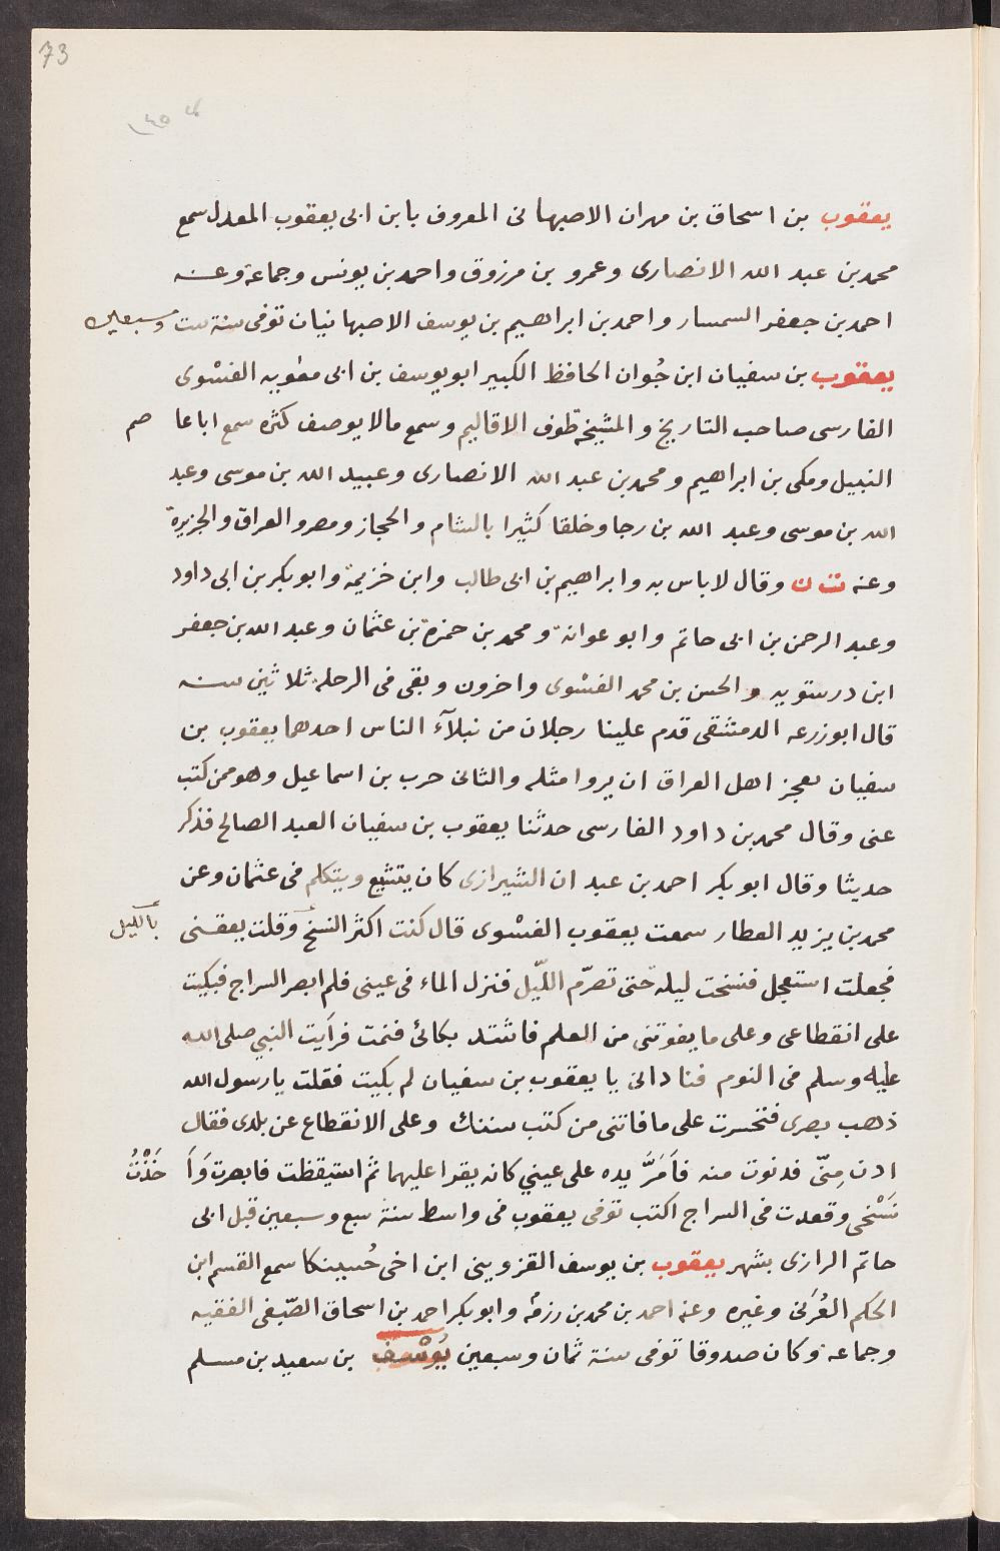 73
يعقوب بن اسحاق بن مهران الاصبهانى المعروف بابن ابى يعقوب المعدل سمع
محمد بن عبد الله الانصارى وعمرو بن مرزوق واحمد بن يونس وجماعة وعنه
احمد بن جعفر السمسار واحمد بن ابراهيم بن يوسف الاصبهانيان توفى سنة ست وسبعين
يعقوب بن سفيان ابن جُوان الحافظ الكبير ابو يوسف بن ابى معٰويه الفسْوى
الفارسى صاحب التاريخ و المشيخة طوف الاقاليم وسمع مالا يوصف كثره سمع اباعا صم
النبيل ومكى بن ابراهيم ومحمد بن عبد الله الانصارى وعبيد الله بن موسى وعبد
الله بن موسى وعبد الله بن رجا وخلقا كثيرا بالشام والحجاز ومصر والعراق والجزيرة
وعنه ت ن وقال لاباس به وابراهيم بن ابى طالب وابن خزيمة وابو بكر بن ابى داود
وعبد الرحمن بن ابى حاتم وابو عوانة ومحمد بن حمزة بن عثمان وعبد الله بن جعفر
ابن درستويه والحسن بن محمد الفسْوى واخرون وبقى فى الرحلة ثلاثين سنه
قال ابوزرعه الدمشقى قدم علينا رجلان من نبلآء الناس احدهما يعقوب بن
سفيان يعجز اهل العراق ان يروا مثله والثانى حرب بن اسماعيل وهو ممن كتب
عنى وقال محمد بن داود الفارسى حدثنا يعقوب بن سفيان العبد الصالح فذكر
حديثا وقال ابو بكر احمد بن عبد ان الشيرازى كان يتشيع ويتكلم فى عثمان وعن
محمد بن يزيد العطار سمعت يعقوب الفسْوى قال كنت اكثر النسخ بالليل وقلت يعقنى
فجعلت استعجل فنسخت ليلة حتى تصرّم اللّيل فنزل الماء فى عينى فلم ابصر السراج فبكيت
على انقطاعى وعلى ما يفوتنى من العلم فاشتد بكائى فنمت فرأيت النبى صلى الله
عليه وسلم فى النوم فنادانى يا يعقوب بن سفيان لم بكيت فقلت يا رسول الله
ذهب بصرى فتحسرت على ما فاتنى من كتب سننك وعلى الانقطاع عن بلدى فقال
ادن مِنّى فدنوت منه فأمَرَّ يده على عيني كانه يقرا عليهما ثم استيقظت فابصرت وَأَ خَذْتُ
نَسْخى وقعدت فى السراج اكتب توفى يعقوب فى واسط سنة سبع وسبعين قبل ابى
حاتم الرازى بشهر يعقوب بن يوسف القزوينى ابن اخى حُسينكا سمع القسم ابن
الحكم العُرَنى وغيره وعنه احمد بن محمد بن رزمة وابو بكر احمد بن اسحاق الصّبغى الفقيه
وجماعة وكان صدوقا توفى سنة ثمان وسبعين يُوسُف بن سعيد بن مسلم